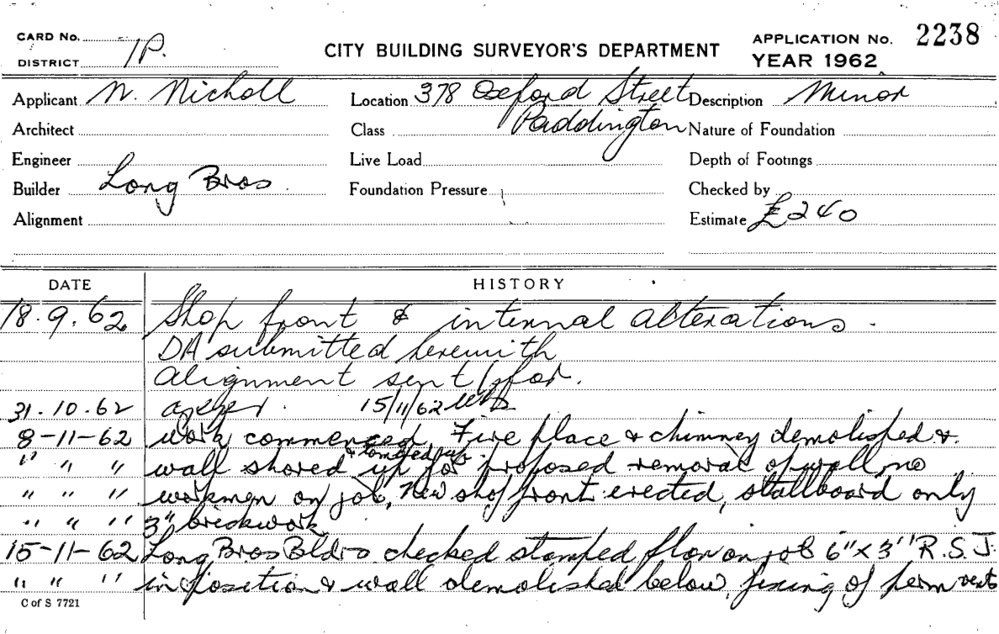 CARD No.
DISTRICT 7P.
CITY BUILDING SURVEYOR'S DEPARTMENT
APPLICATION No. 2238
YEAR 1962
Applicant N. Nicholl Location 378 Oxford Street Description Minor
Architect Class Paddington Nature of Foundation
Engineer Live Load Depth of Footings
Builder Long Bros. Foundation Pressure Checked by
Alignment Estimate £240
DATE HISTORY
18.9.62 Shop front & internal alterations.
DA submitted herewith
Alignment sent for.
31.10.62 15/11/62
8-11-62 work commenced, Fire place & chimney demolished &
" " " wall shored up for proposed removal of wall, no
" " " workmen on job, New shop front erected, stallboard only
" " " 3" brickwork
15-11-62 Long Bros Bldrs checked stamped plan on job 6" x 3" R.S.J.
" " " in position & wall demolished below, fixing of perm vents
C of S 7721